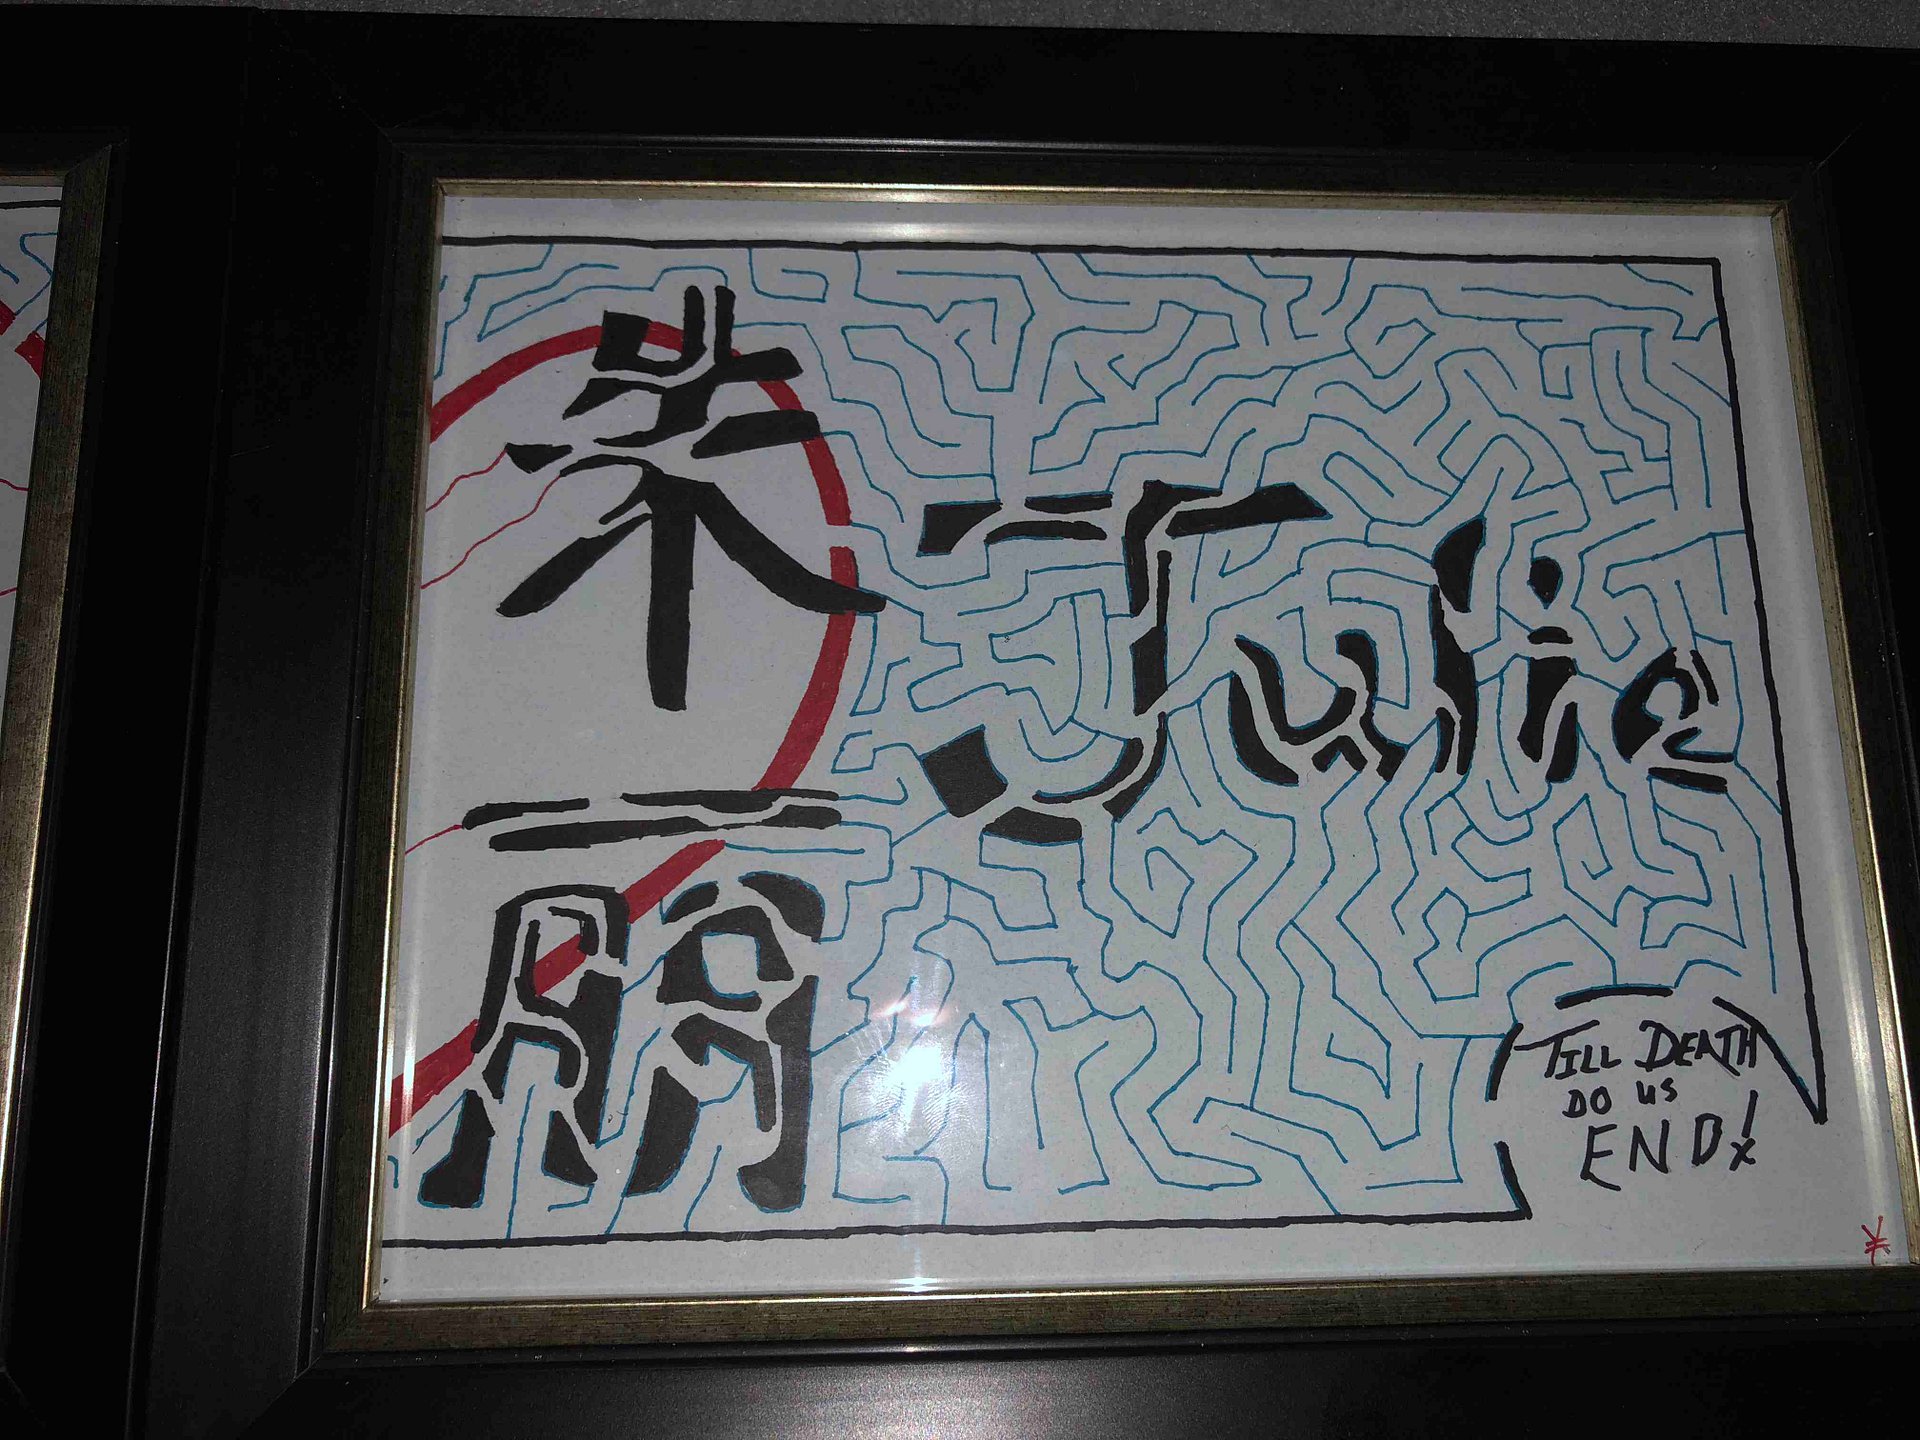 茱
丽
Julie
TILL DEATH
DO US
END!
x